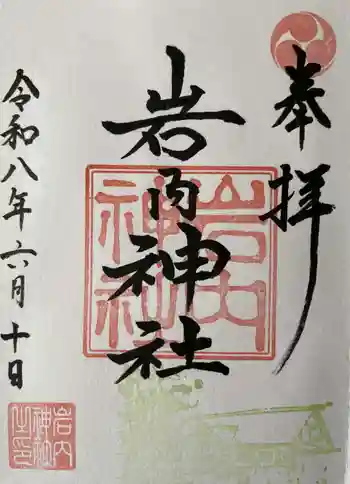 奉拝
岩内神社
令和八年六月十日
岩内神社
岩内神社之印